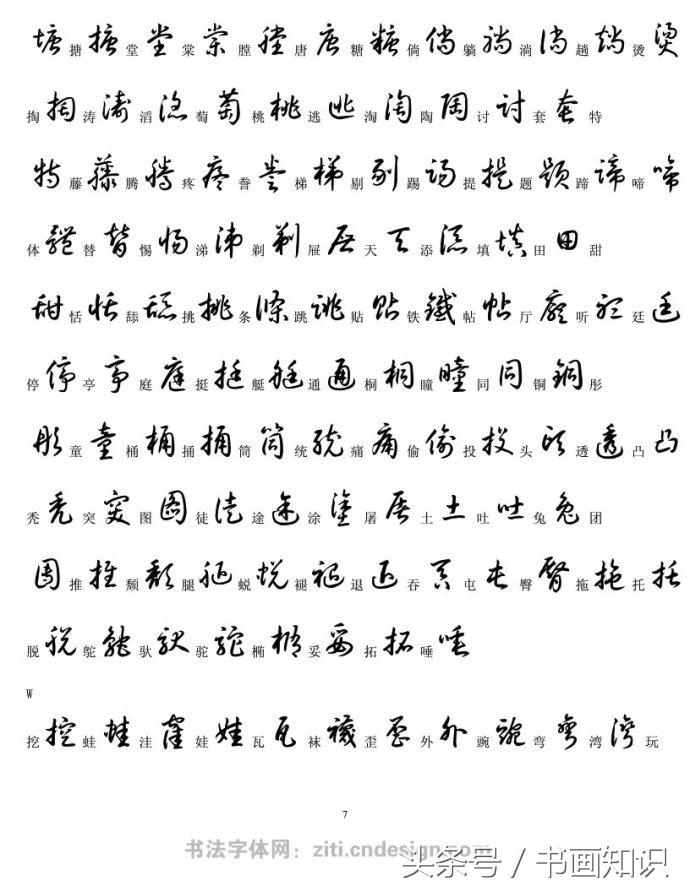 塘 搪 搪 堂 堂 棠 棠 膛 膛 唐 唐 糖 糖 倘 倘 躺 躺 淌 淌 趟 趟 烫 燙
掏 掏 涛 濤 滔 滔 萄 萄 桃 桃 逃 逃 淘 淘 陶 陶 讨 討 套 套 特
特 藤 藤 腾 騰 疼 疼 誊 誊 梯 梯 剔 剔 踢 踢 提 提 题 題 蹄 蹄 啼 啼
体 體 替 替 惕 惕 涕 涕 剃 剃 屉 屉 天 天 添 添 填 填 田 田 甜
甜 恬 恬 舔 舔 挑 挑 条 條 跳 跳 贴 貼 铁 鐵 帖 帖 厅 廳 听 聽 廷 廷
停 停 亭 亭 庭 庭 挺 挺 艇 艇 通 通 桐 桐 瞳 瞳 同 同 铜 銅 彤
彤 童 童 桶 桶 捅 捅 筒 筒 统 統 痛 痛 偷 偷 投 投 头 頭 透 透 凸 凸
秃 禿 突 突 图 圖 徒 徒 途 途 涂 塗 屠 屠 土 土 吐 吐 兔 兔 团
團 推 推 颓 頹 腿 腿 蜕 蜕 褪 褪 退 退 吞 吞 屯 屯 臀 臀 拖 拖 托 托
脱 脱 鸵 鴕 驮 馱 驼 駝 椭 橢 妥 妥 拓 拓 唾 唾
W
挖 挖 蛙 蛙 洼 窪 娃 娃 瓦 瓦 袜 襪 歪 歪 外 外 豌 豌 弯 彎 湾 灣 玩
7
书法字体网：ziti.cndesign.com
头条号/书画知识